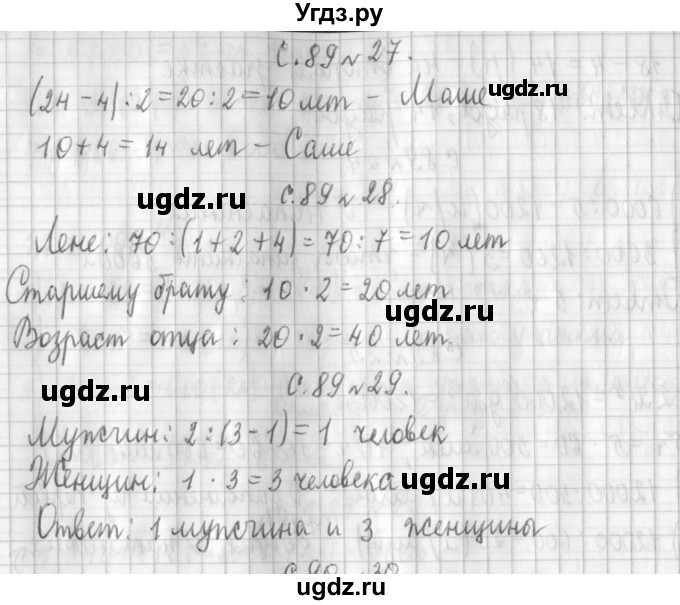 Угдз.ру
с.89 № 27.
(24 - 4) : 2 = 20 : 2 = 10 лет - Маше
10 + 4 = 14 лет - Саше
ugdz.ru
с.89 № 28.
Лене: 70 : (1 + 2 + 4) = 70 : 7 = 10 лет
Старшему брату : 10 · 2 = 20 лет
ugdz.ru
Возраст отца : 20 · 2 = 40 лет.
ugdz.ru
с.89 № 29.
Мужчин: 2 : (3 - 1) = 1 человек
Женщин: 1 · 3 = 3 человека
ugdz.ru
Ответ: 1 мужчина и 3 женщины
ugdz.ru